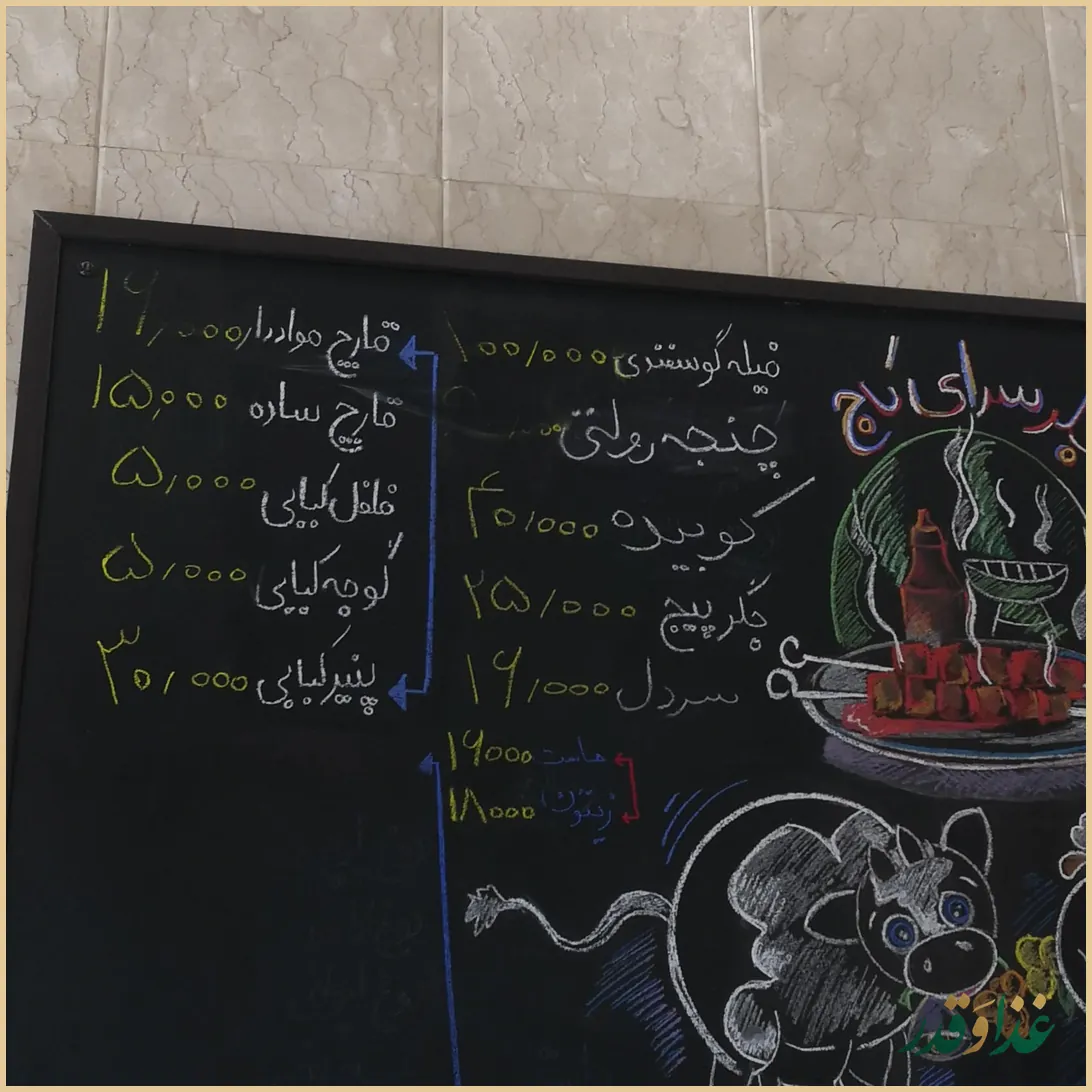 سرای
فیله گوسفندی ۱۰۰/۰۰۰
چنجه رولتی
کوبیده ۴۰/۰۰۰
جگر پیچ ۲۵/۰۰۰
سردل ۱۹/۰۰۰
ماست ۱۹۰۰۰
زیتون ۱۸۰۰۰
قارچ مواددار ۱۹,۰۰۰
قارچ ساده ۱۵,۰۰۰
فلفل کبابی ۵/۰۰۰
گوجه کبابی ۵/۰۰۰
پنیر کبابی ۳۰/۰۰۰
غذا و قدر